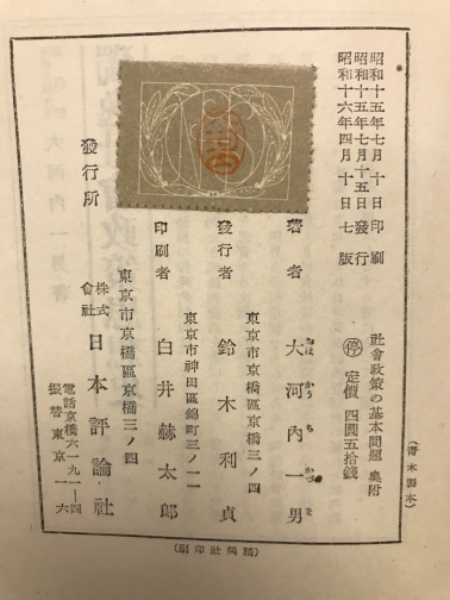 昭和十五年七月十日印刷
昭和十五年七月十五日發行
昭和十六年四月十日七版
社會政策の基本問題 奥附
停 定價 四圓五拾錢
著者 大河内一男
おほ かう ち かづ を
東京市京橋區京橋三ノ四
發行者 鈴木利貞
東京市神田區錦町三ノ一一
印刷者 白井赫太郎
發行所
東京市京橋區京橋三ノ四
株式會社 日本評論社
電話京橋六一九一—四
振替東京一六
(青木製本)